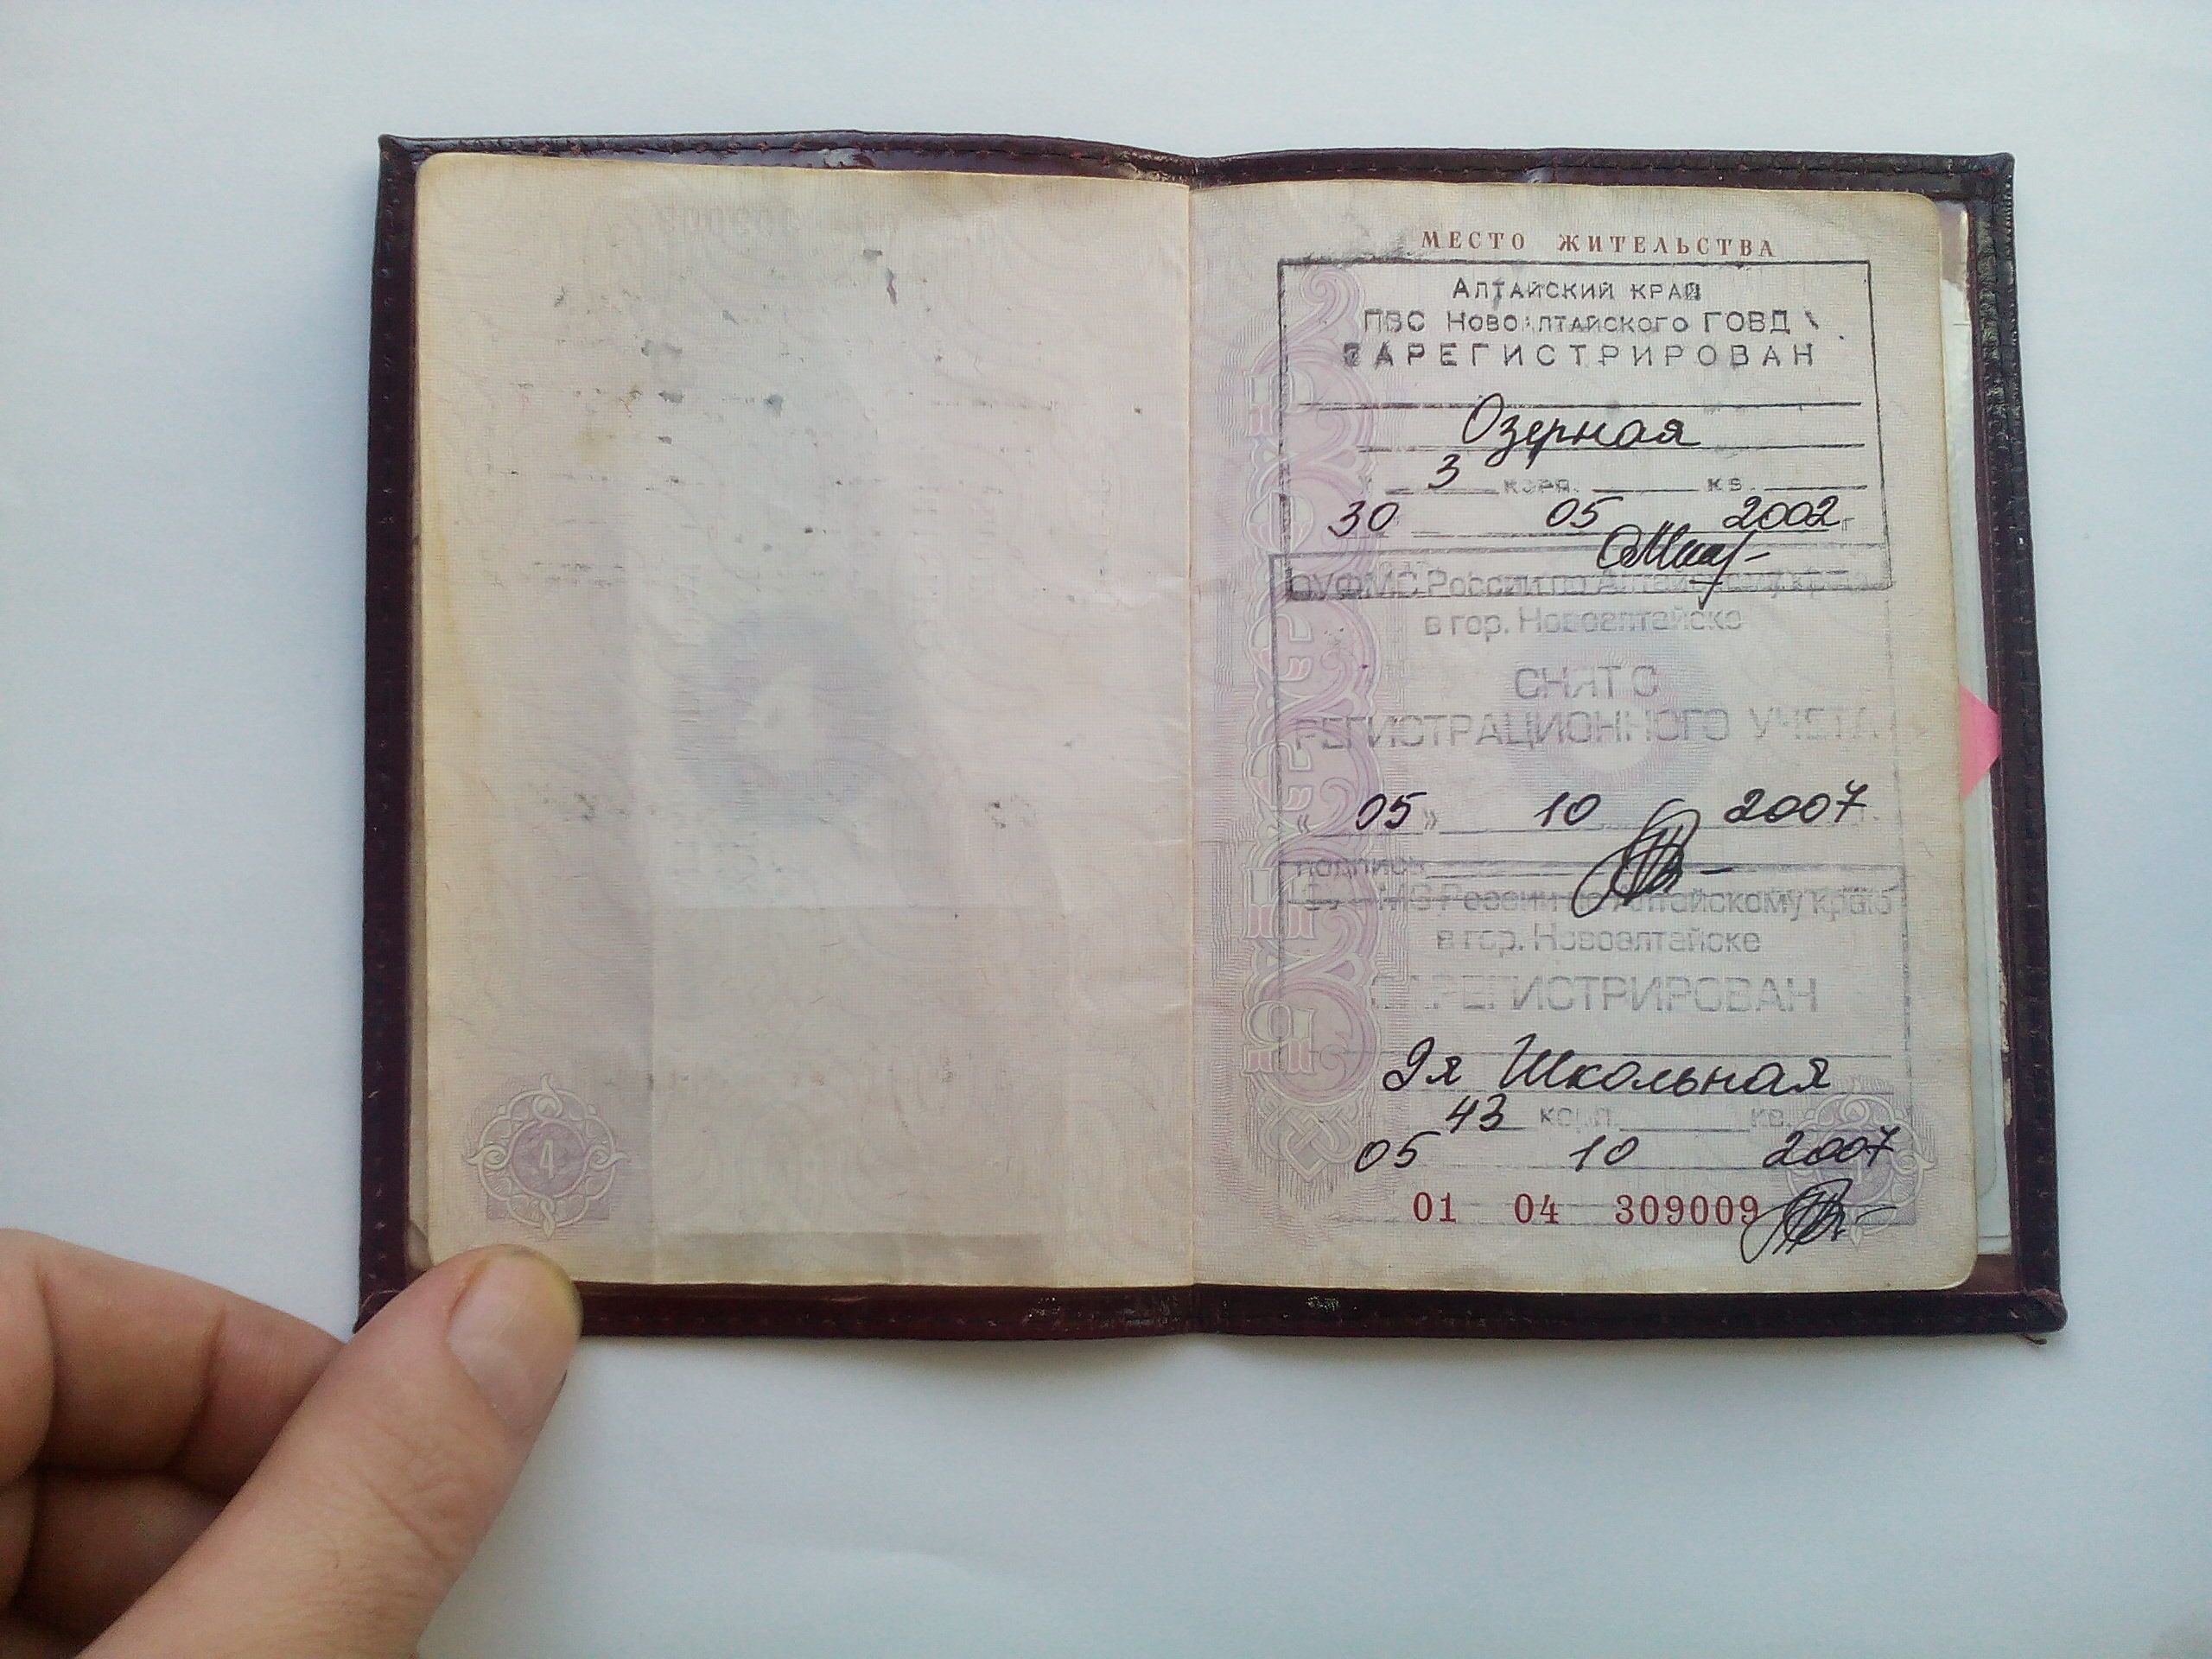 МЕСТО ЖИТЕЛЬСТВА
АЛТАЙСКИЙ КРАЙ
ПВС НОВОАЛТАЙСКОГО ГОВД
ЗАРЕГИСТРИРОВАН
Озерная
3 корп. кв.
30 05 2002 г
ОУФМС России по Алтайскому краю
в гор. Новоалтайске
СНЯТ С
РЕГИСТРАЦИОННОГО УЧЕТА
« 05 » 10 2007 г.
подпись
ОУФМС России по Алтайскому краю
в гор. Новоалтайске
ЗАРЕГИСТРИРОВАН
9я Школьная
43 корп. кв.
05 10 2007
01 04 309009
4